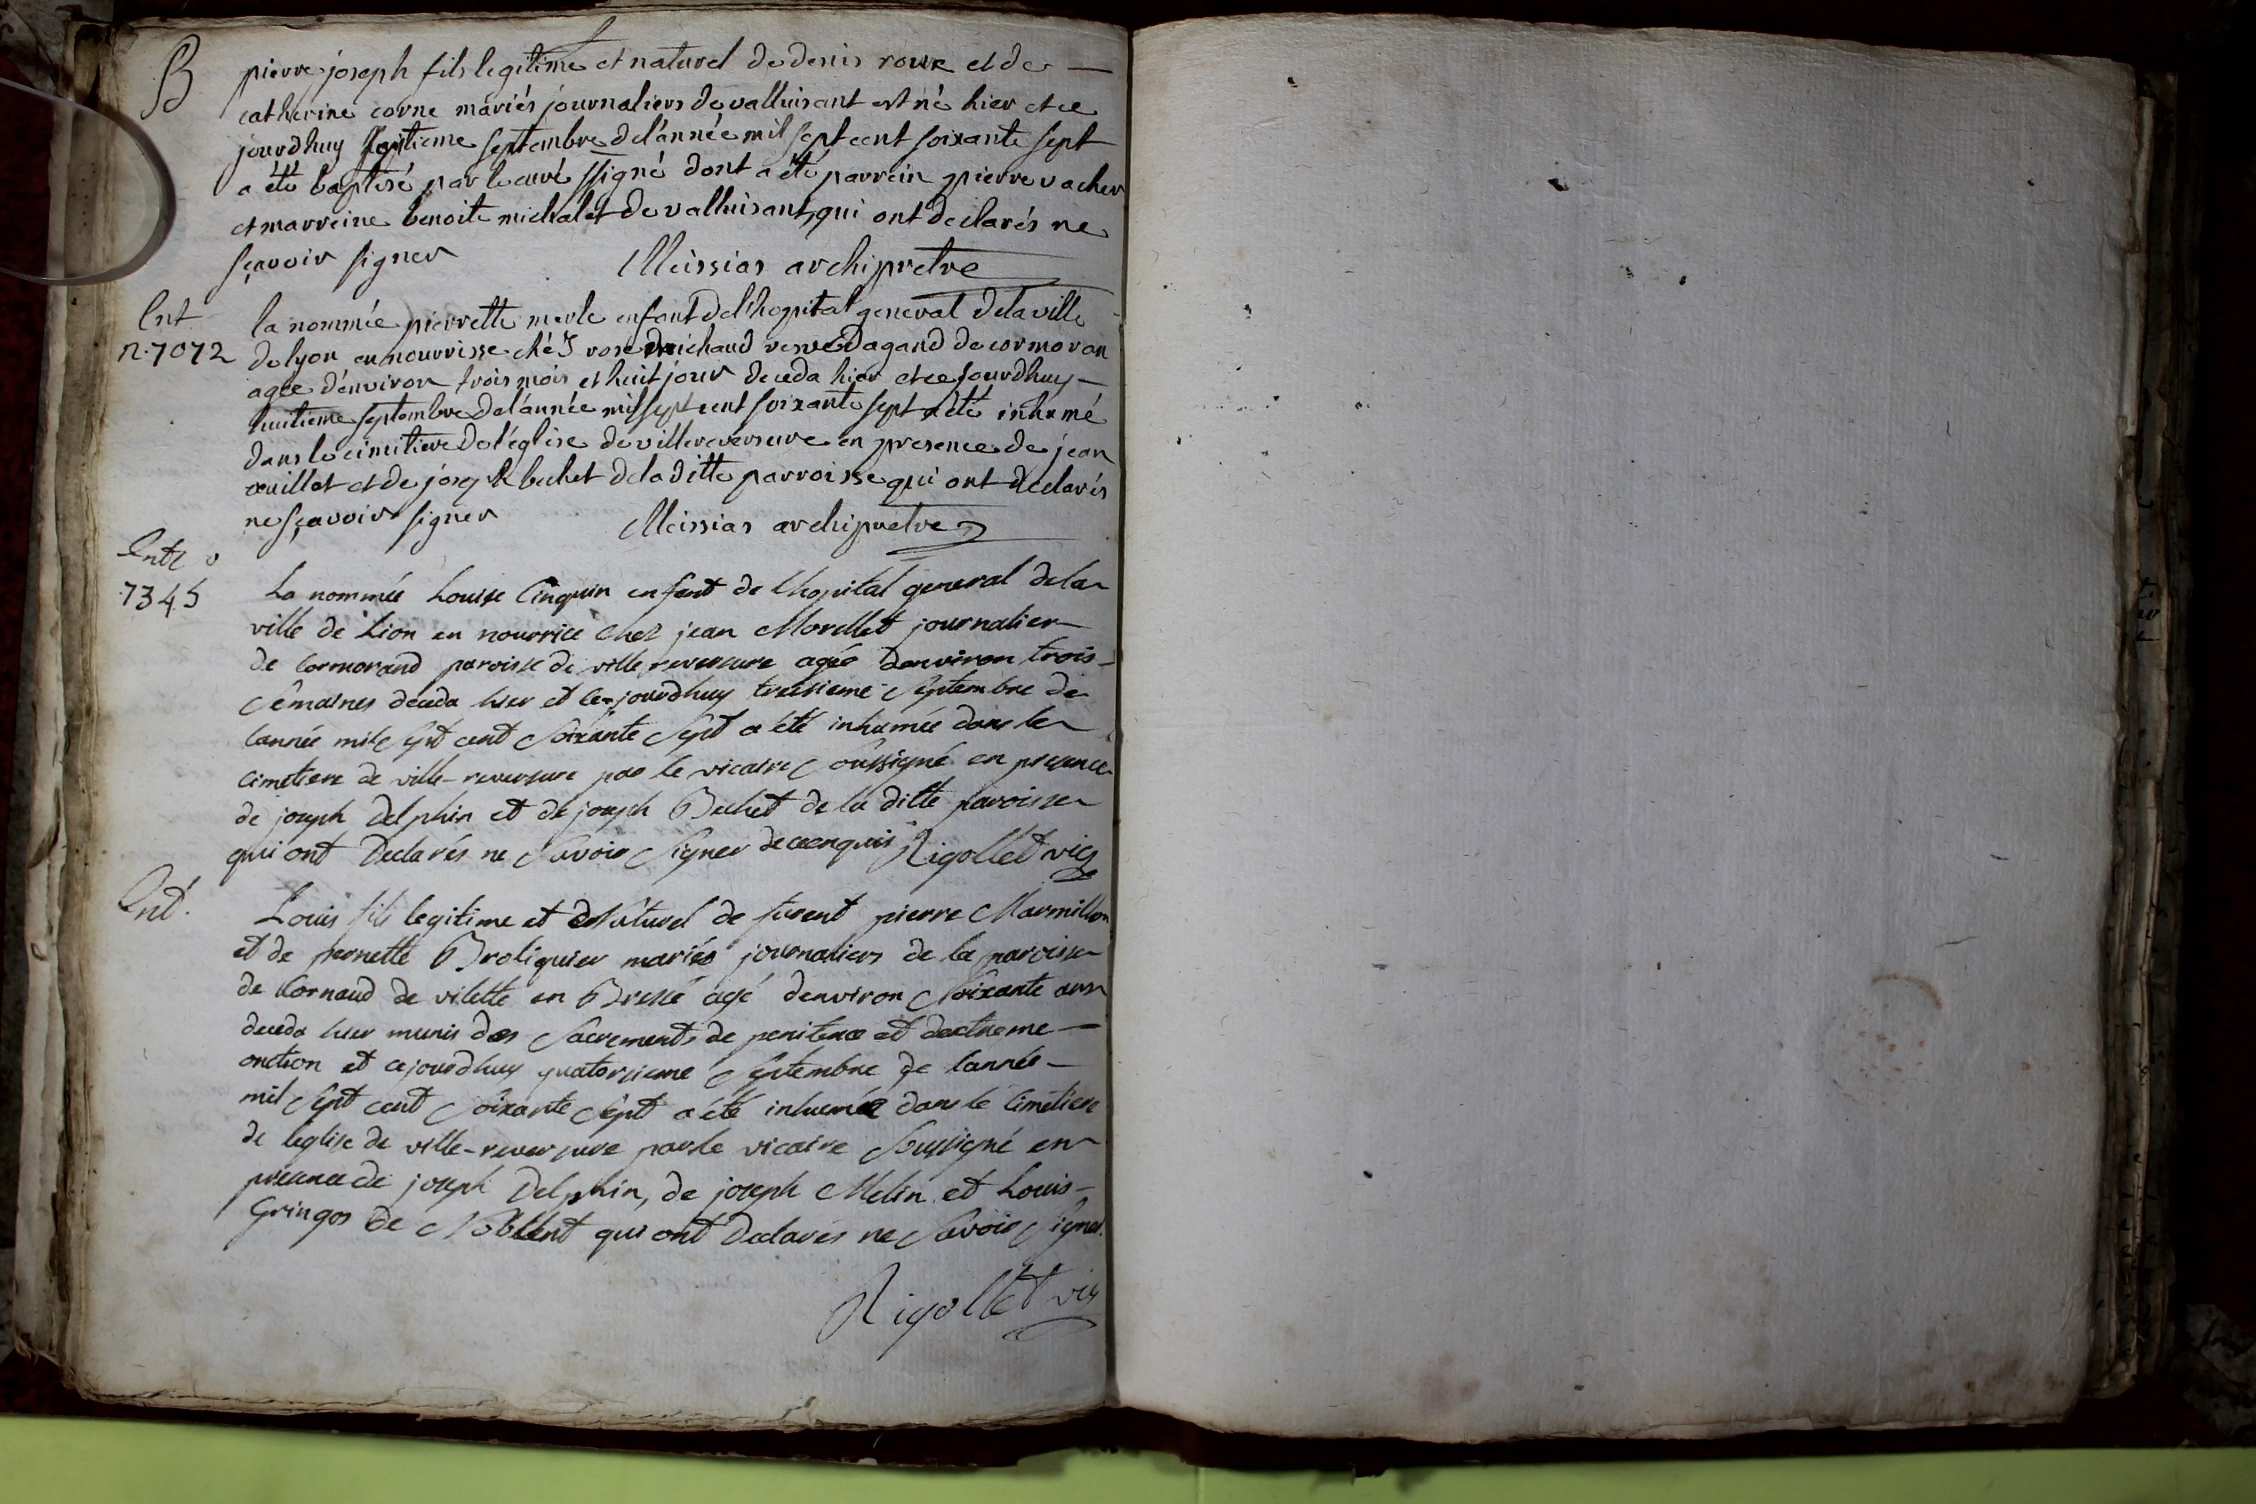 B
pierre joseph fils legitime et naturel de denis roux et de
catherine corne mariés journaliers de valluisant est né hier et ce
jourdhuy septieme septembre de l'année mil sept cent soixante sept
a été baptisé par le curé ssigné dont a été parrein pierre vacher
et marreine benoite michalet de valluisant, qui ont declarés ne
sçavoir signer Meissias archipretre
Ent
n. 7072
la nommée pierrette merle enfant de l'hopital general de la ville
de lyon en nourrisse chés rose michaud veuve dagand de cormoran
agée d'environ trois mois et huit jour deceda hier et ce jourdhuy
huitieme septembre de l'année mil sept cent soixante sept a été inhumé
dans le cimetiere de l'église de villereversure en presence de jean
œuillet et de joseph bechet de la ditte parroisse qui ont declarés
ne sçavoir signer Meissias archipretre
Ent
7345
La nommée Louise Cinquin enfant de lhopital general de la
ville de Lion en nourrice chez jean Morellet journalier
de Cormorand paroisse de ville reversure agée denviron trois
semaines deceda hier et cejourdhuy treisieme septembre de
lannée mil sept cent soixante sept a été inhumée dans le
cimetiere de ville-reversure par le vicaire soussigné en presence
de joseph Delphin et de joseph Bechet de la ditte paroisse
qui ont Declarés ne savoir signer de ce enquis Rigollet vic
Ent.
Louis fils legitime et Naturel de furent pierre Marmillon
et de pernette Broliquier mariés journaliers de la paroisse
de Cornaud de vilette en Bresse agé denviron soixante ans
deceda hier munis des sacrements de penitence et dextreme
onction et cejourdhuy quatorsieme septembre de lannée
mil sept cent soixante sept a été inhumé dans le cimetiere
de léglise de ville-reversure par le vicaire soussigné en
presence de joseph Delphin, de joseph Melin et Louis
Gringos de Noblent qui ont declarés ne savoir signer.
Rigollet vic